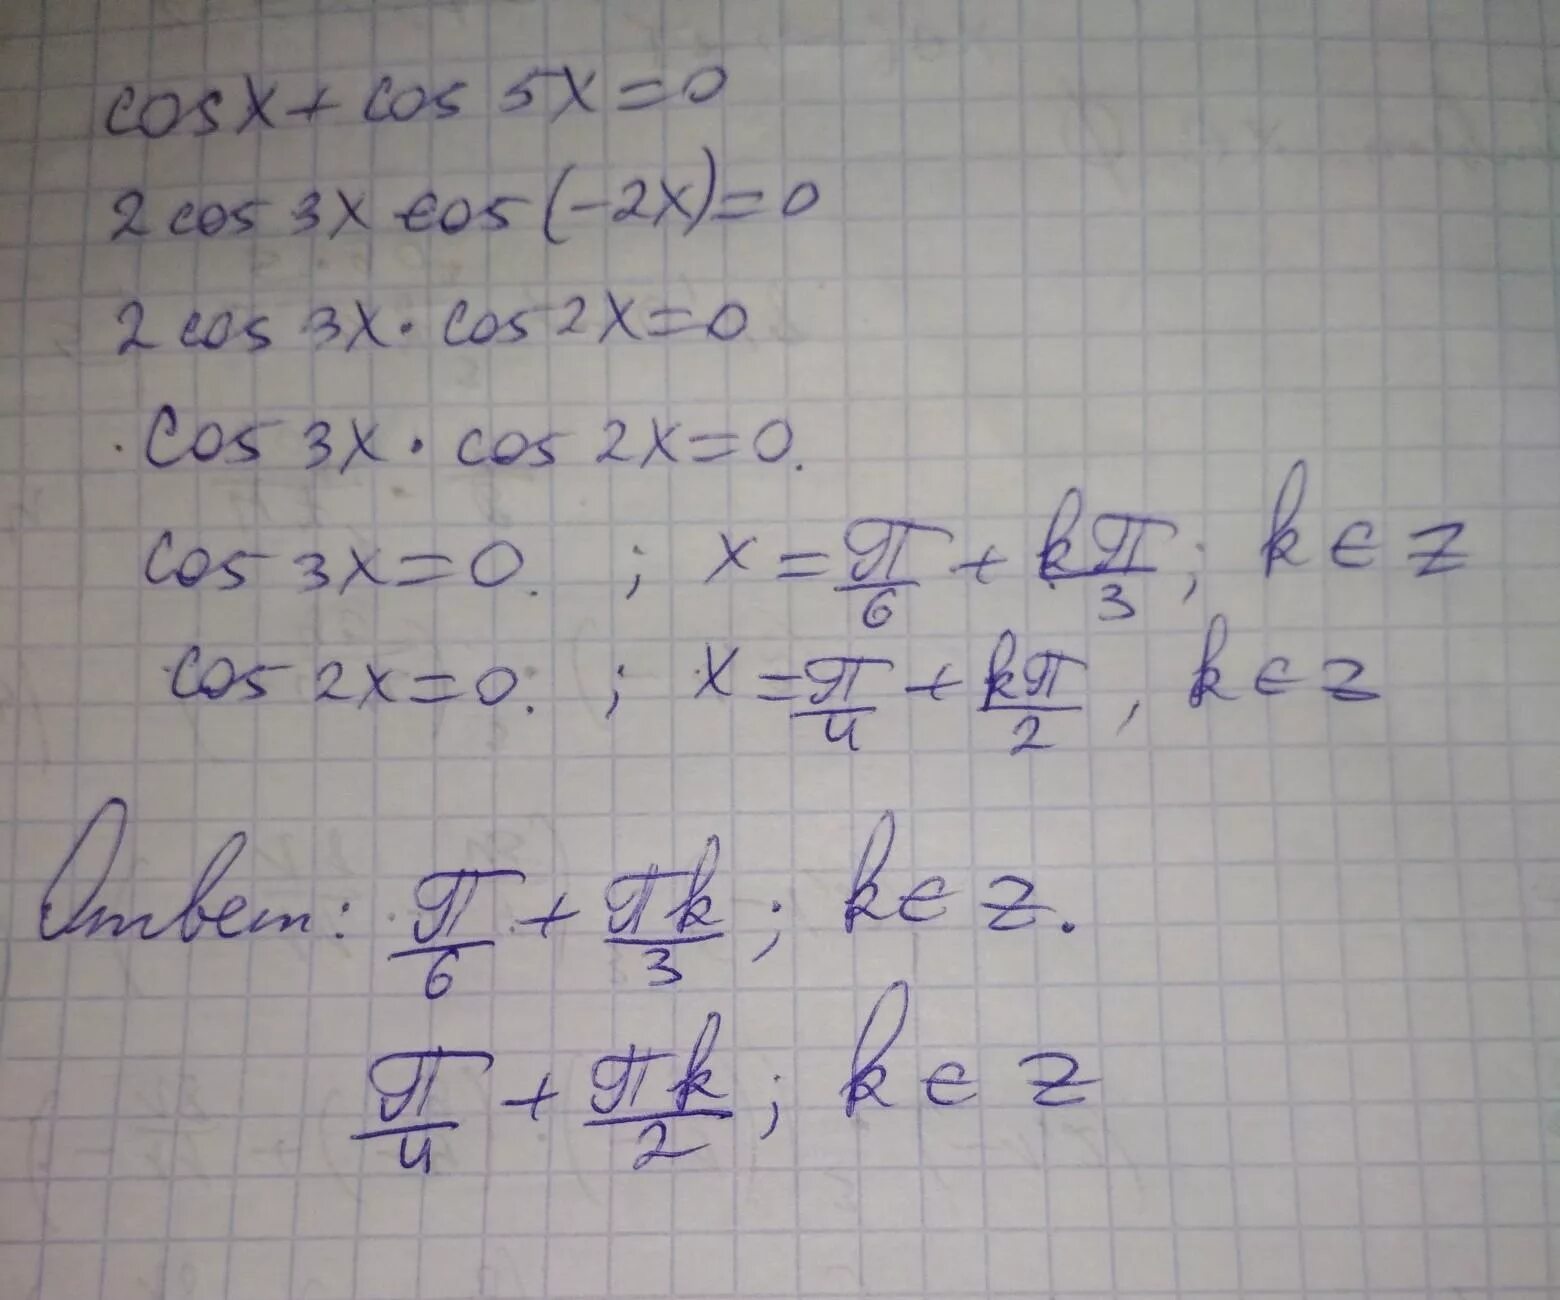 cosx + cos 5x = 0
2 cos 3x cos (-2x) = 0
2 cos 3x · cos 2x = 0
cos 3x · cos 2x = 0.
cos 3x = 0. ; x = π/6 + kπ/3 ; k ∈ z
cos 2x = 0. ; x = π/4 + kπ/2 , k ∈ z
Ответ: π/6 + πk/3 ; k ∈ z.
π/4 + πk/2 ; k ∈ z